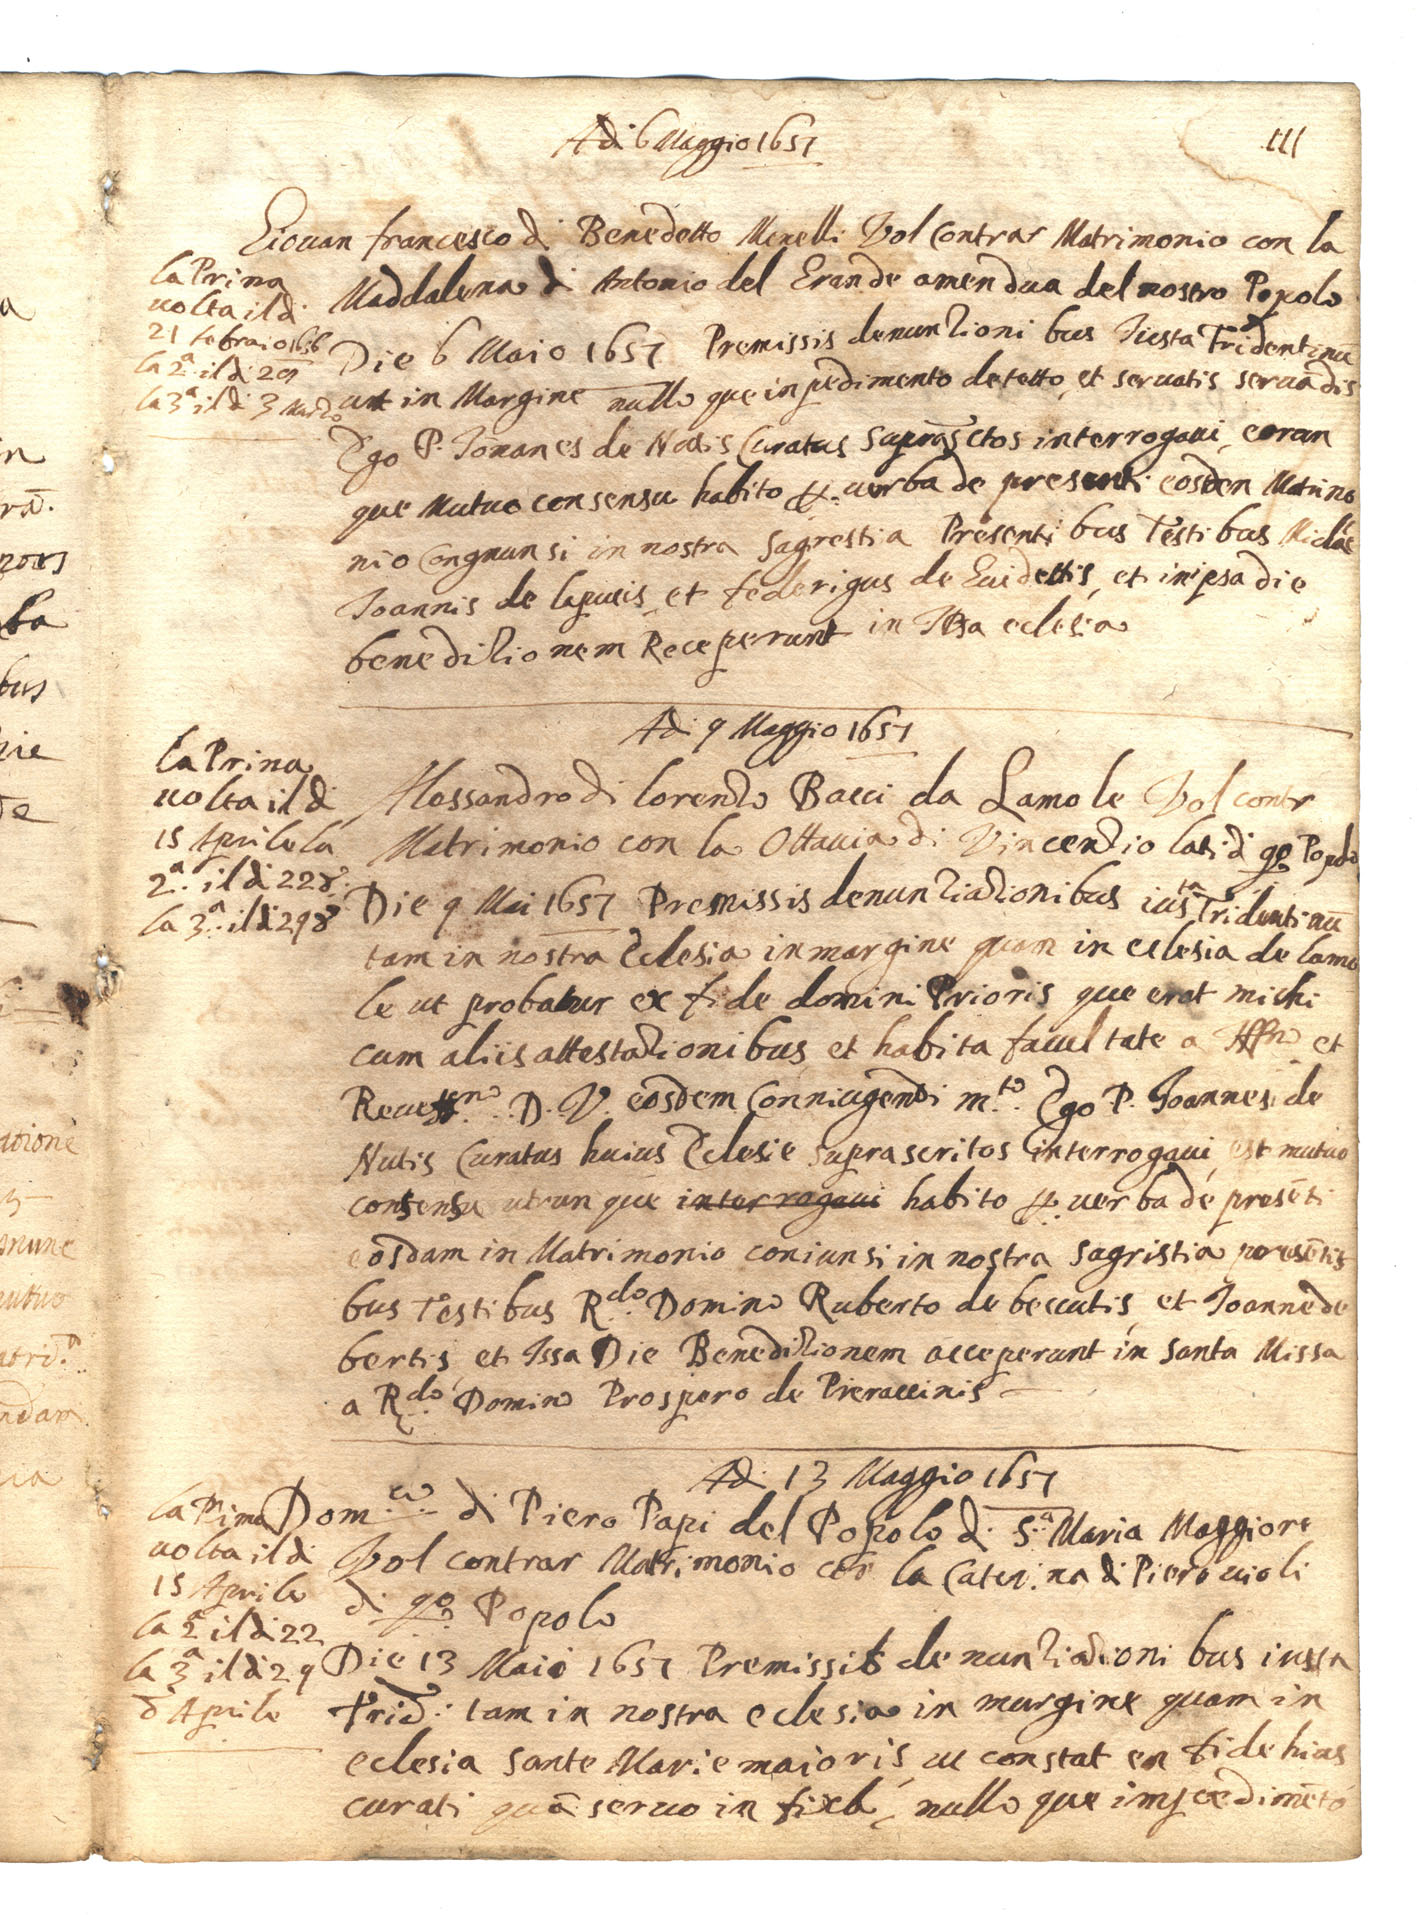 Adi 6 Maggio 1657
111
Giouan francesco di Benedetto Minelli Vol Contrar Matrimonio con la
la Prima
uolta il di
21 febraio 1656
la 2ª il di 25
la 3ª il di 3 Marzo
Maddalena di Antonio del Grande amendua del nostro Popolo
Die 6 Maio 1657 Premissis denunzionibus Iusta Tridentinū
ut in Margine nullo que inpedimento detetto, et seruatis seruadis
Ego P. Joannes de Notis Curatus supraSctos interrogaui, eoran
que Mutuo consensu habito p. uerba de presenti eosden Matrimo
nio Congnunsi in nostra Sagrestia Presentibus Testibus
Joannis de lapucis, et federigus de Guidettis, et inipsa die
benedizionem Receperunt in Issa eclesia
Adi 9 Maggio 1657
la Prima
uolta il di
15 Aprile la
2ª. il di 22 d.
la 3ª. il di 29 d
Alessandro di lorenzo Bacci da Lamole Vol contr
Matrimonio con la Ottauia di Vincenzio lasi di qo Popolo
Die 9 Mai 1657 Premissis denunziazionibus iusta Tridentinū
tam in nostra Eclesia in margine quam in eclesia de lamo
le ut probatur ex fide domini Prioris que erat michi
cum aliis attestazionibus et habita facultate a et
D. V. eosdem Conniugendi m.to Ego P. Joannes de
Nutis Curatus huius Eclesie suprascritos interrogaui, est mutuo
consensu utrunque interrogaui habito p. uerba de presēti
eosdam in Matrimonio coniunsi in nostra sagristia presētis
bus Testibus R.do Domino Ruberto de beccutis, et Joanne de
bertis, et Issa Die Benedizionem acceperunt in santa Missa
a R.do Domino Prospero de Pieraccinis
Adi 13 Maggio 1657
la Pima
uolta il di
15 Aprile
la 2ª il di 22
la 3ª il di 29
d Aprile
Dom.co di Piero Papi del Popolo di S.ª Maria Maggiore
Vol contrar Matrimonio con la Caterina di Piero uioli
di qo Popolo
Die 13 Maio 1657 Premissis denunziazionibus iussta
Trid. tam in nostra eclesia in margine quam in
eclesia sante Marie maioris, ut constat en fide hius
curati quā seruo in filza, nullo que impedimēto